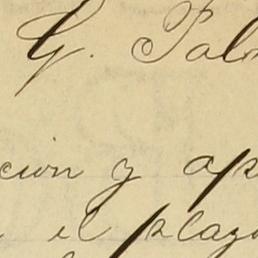 G. Pal
cion y ap
el plazo